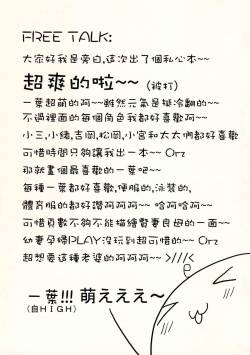 FREE TALK:
大家好我是旁白,這次出了個私心本~~
超爽的啦~~ (被打)
一葉超萌的阿~~雖然元氣是挺冷翻的~~
不過裡面的每個角色我都好喜歡阿~~
小三,小繞,吉岡,松岡,小宮和太太們都好喜歡
可惜時間只夠讓我出一本~~ Orz
那就畫個最喜歡的一葉吧~~
每種一葉都好喜歡,便服的,泳裝的,
體育服的都好讚阿阿阿~~ 哈阿哈阿~~
可惜頁數不夠不能描繪賢妻良母的一面~~
幼妻孕婦PLAY沒玩到超可惜的~~ Orz
超想要這種老婆的阿阿阿~~ >///<
一葉!!! 萌えええ~
(自HIGH)